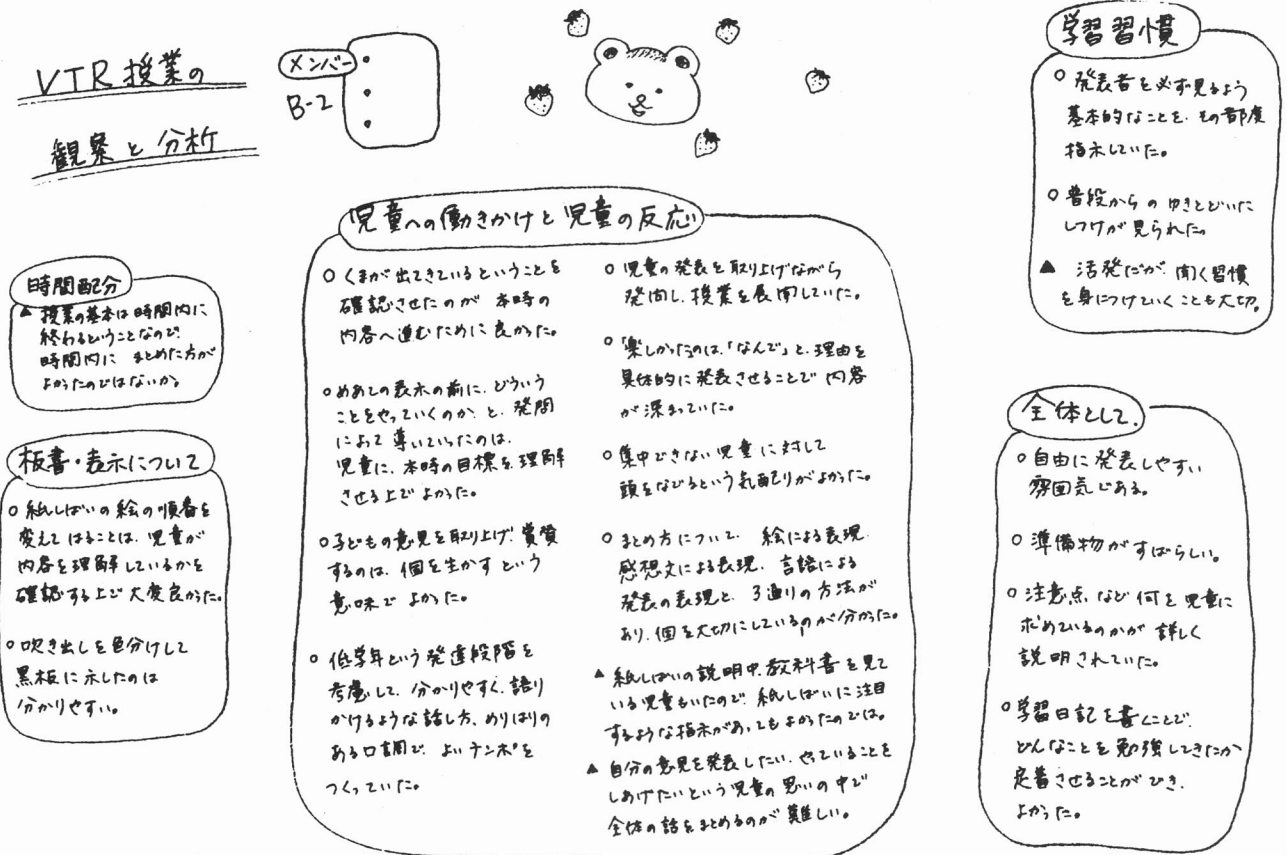 VTR授業の
観察と分析
メンバー
B-2
時間配分
▲ 授業の基本は時間内に
終わるということなので、
時間内に まとめた方が
よかったのではないか。
板書・表示について
○ 紙しばいの絵の順番を
変えてはることは、児童が
内容を理解しているかを
確認する上で大変良かった。
○ 吹き出しを色分けして
黒板に示したのは
分かりやすい。
児童への働きかけと児童の反応
○ くまが出てきているということを
確認させたのが 本時の
内容へ進むために良かった。
○ めあての表示の前に、どういう
ことをやっていくのか、と、発問
によって導いていったのは、
児童に、本時の目標を理解
させる上でよかった。
○ 子どもの意見を取り上げ、賞賛
するのは、個を生かすという
意味でよかった。
○ 低学年という発達段階を
考慮して、分かりやすく、語り
かけるような話し方、めりはりの
ある口調で、よいテンポを
つくっていた。
○ 児童の発表を取り上げながら
発問し、授業を展開していた。
○ 「楽しかったのは、「なんで」と、理由を
具体的に発表させることで内容
が深まっていた。
○ 集中できない児童に対して
頭をなでるという気配りがよかった。
○ まとめ方について、絵による表現、
感想文による表現、言語による
発表の表現と、3通りの方法が
あり、個を大切にしているのが分かった。
▲ 紙しばいの説明中、教科書を見て
いる児童もいたので、紙しばいに注目
するような指示があってもよかったのでは。
▲ 自分の意見を発表したい、やっていることを
しあげたいという児童の思いの中で
全体の話をまとめるのが難しい。
学習習慣
○ 発表者を必ず見るよう
基本的なことを、その都度
指示していた。
○ 普段からのゆきとどいた
しつけが見られた。
▲ 活発だが、聞く習慣
を身につけていくことも大切。
全体として
○ 自由に発表しやすい
雰囲気である。
○ 準備物がすばらしい。
○ 注意点など何を児童に
求めているのかが詳しく
説明されていた。
○ 学習日記を書くことで、
どんなことを勉強してきたか
定着させることができ、
よかった。